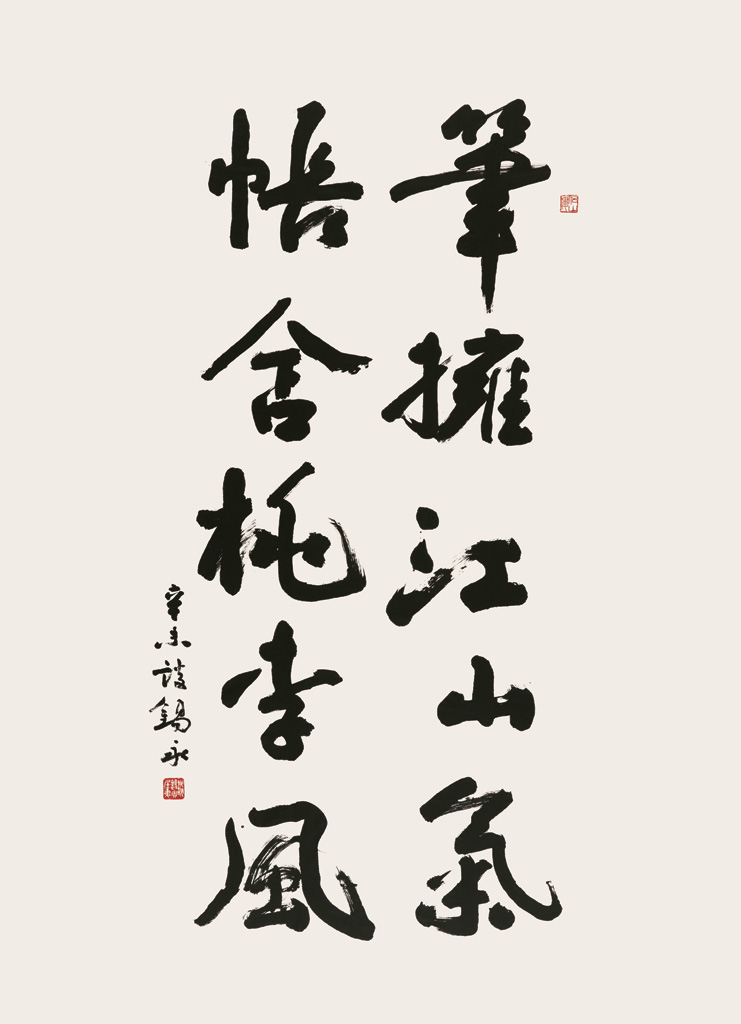 筆擁江山氣
帳含桃李風
辛未談錫永